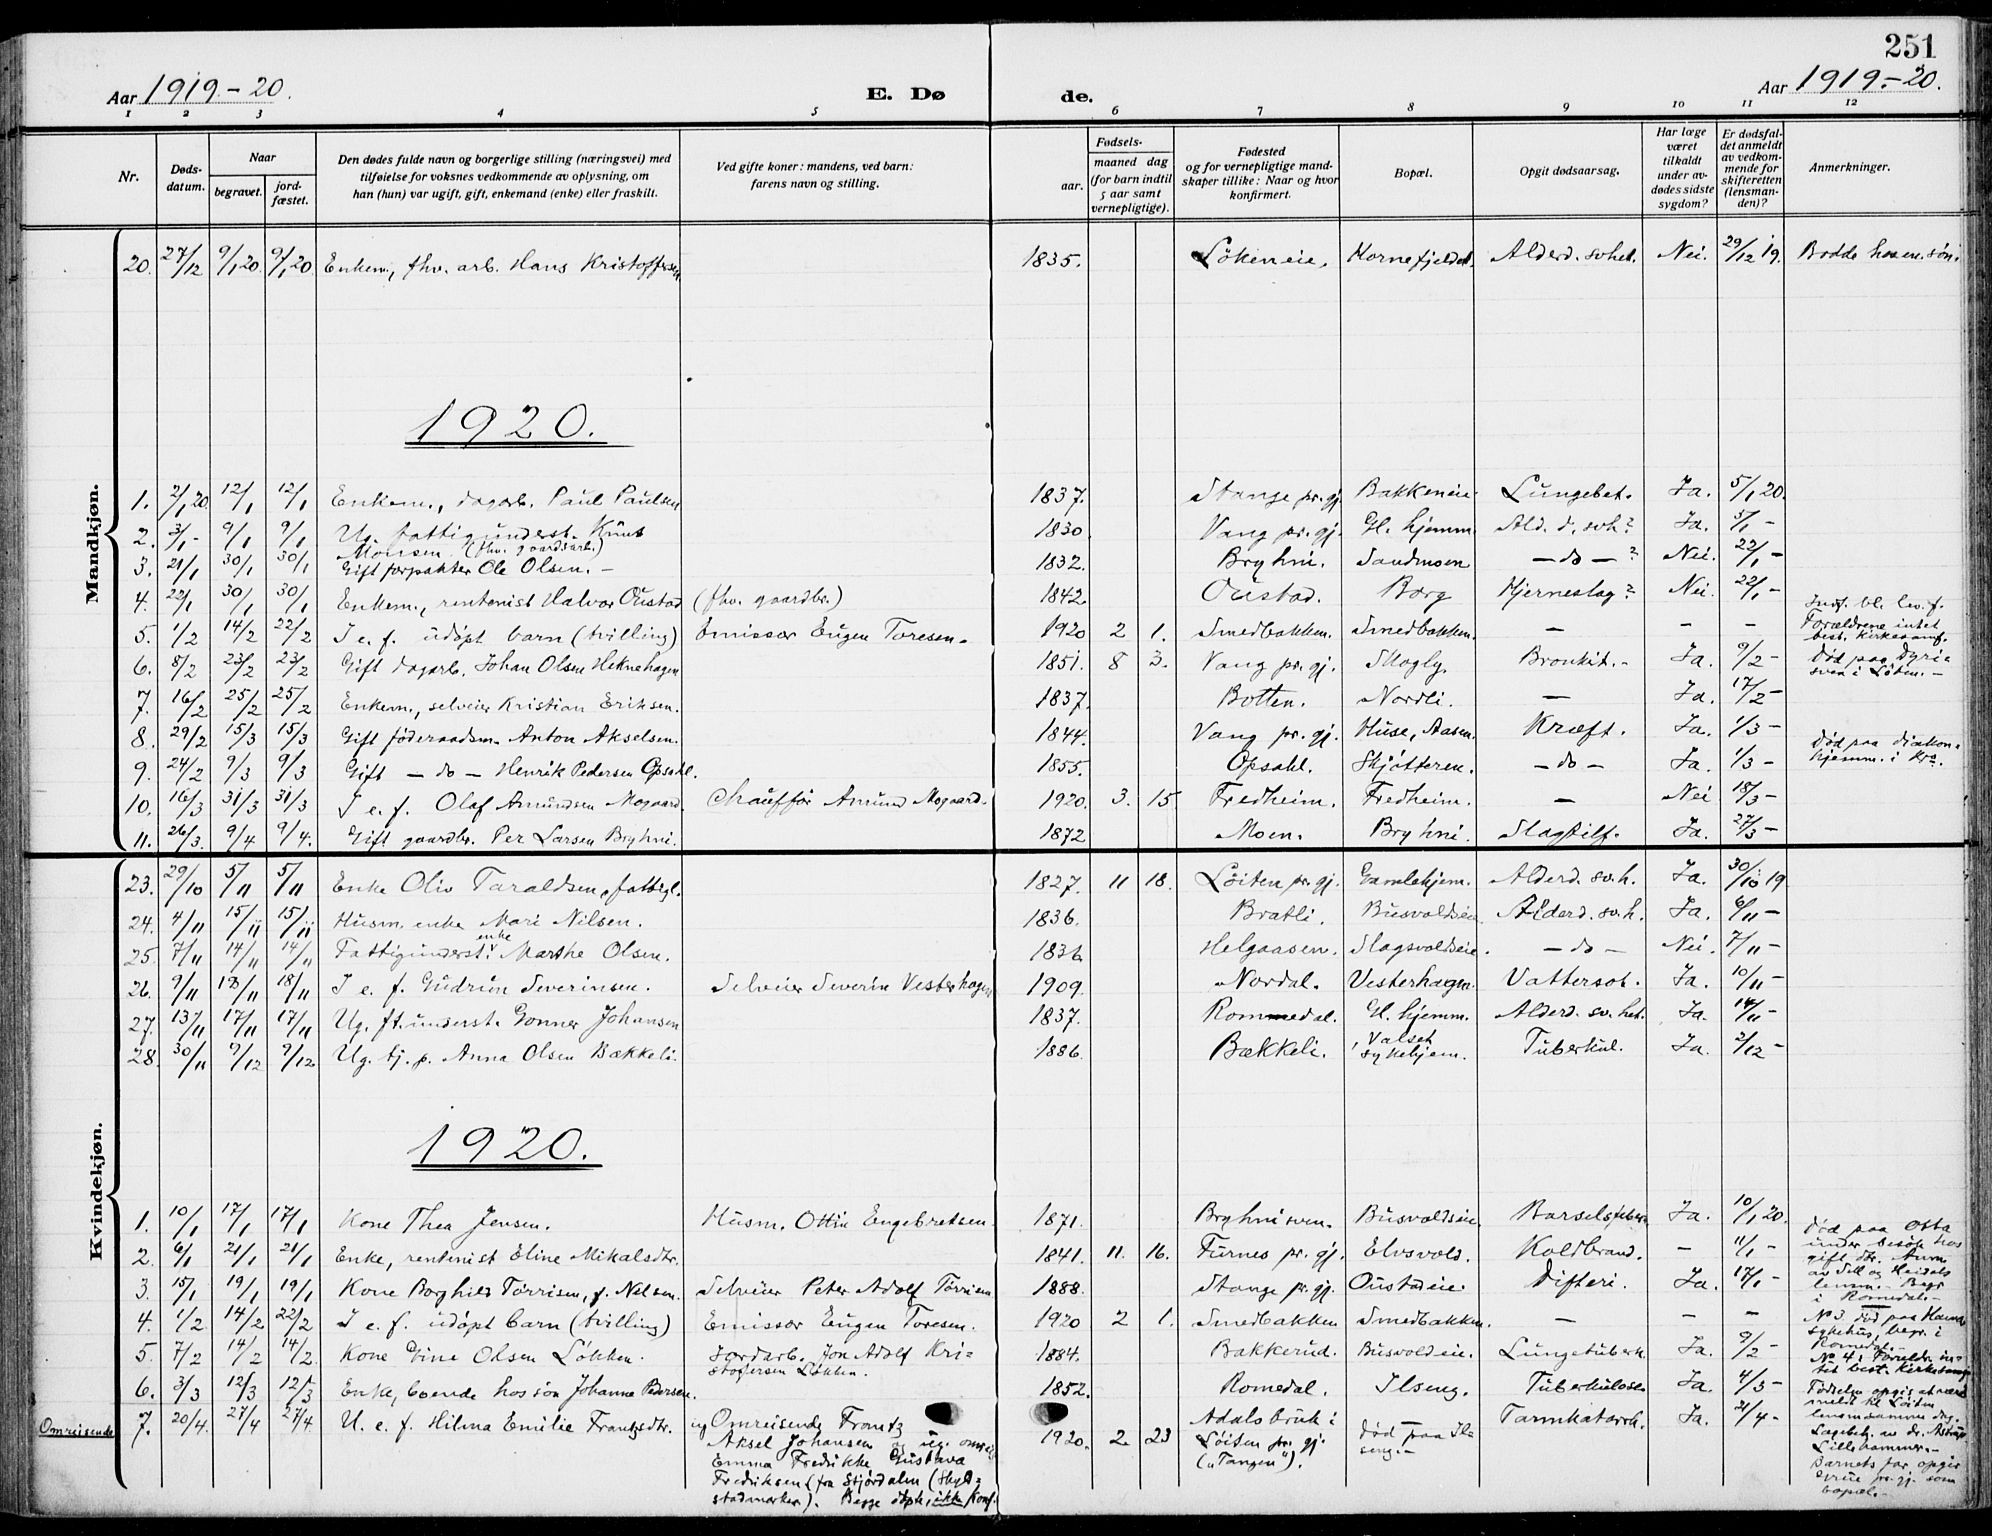 251
Aar 1919.-20.
E. Dø
de.
Aar 1919.-20.
1 2 3 4 5 6 7 8 9 10 11 12
Nr.
Døds-
datum.
Naar
begravet.
jord-
fæstet.
Den dødes fulde navn og borgerlige stilling (næringsvei) med
tilføielse for voksnes vedkommende av oplysning, om
han (hun) var ugift, gift, enkemand (enke) eller fraskilt.
Ved gifte koner: mandens, ved barn:
farens navn og stilling.
Fødsels-
aar.
maaned dag
(for barn indtil
5 aar samt
vernepligtige).
Fødested
og for vernepligtige mand-
skaper tillike: Naar og hvor
konfirmert.
Bopæl.
Opgit dødsaarsag.
Har læge
været
tilkaldt
under av-
dødes sidste
sygdom?
Er dødsfal-
det anmeldt
av vedkom-
mende for
skifteretten
(lensman-
den)?
Anmerkninger.
Mandkjøn.
20. 27/12 9/1 20 9/1 20 Enkem., fhv. arb. Hans Kristoffersen 1835. Løkeneie. Hornefjeldet. Alderd. svhet. Nei. 29/12 19. Bodde hos en søn.
1920.
1. 2/1 20. 12/1 12/1 Enkem., dagarb. Paul Paulsen 1837. Stange pr. gj. Bakkeneie. Lungebet. Ja. 5/1 20.
2. 3/1 - 9/1 9/1 Ug. fattigunderst. Knut
Monsen. (fhv. gaardsarb.) 1830. Vang pr. gj. Gl. hjemm. Ald. d. svh? Ja. 5/1 -
3. 21/1 30/1 30/1 Gift forpakter Ole Olsen. - 1832. Bryhni. Sandmoen - do - ? Nei. 22/1 -
4. 22/1 30/1 30/1 Enkem., rentenist Halvor Oustad (fhv. gaardbr.) 1842. Oustad. Borg Hjerneslag? Nei. 22/1 -
5. 1/2 14/2 22/2 I e. f. udøpt barn (tvilling) Emissær Eugen Toresen. 1920 2 1. Smedbakken. Smedbakken. - - - Indf. bl. lev. f.
Forældrene intet
best. kirkesamf.
6. 8/2 23/2 23/2 Gift dagarb. Johan Olsen Heknehagen 1851. 8 3. Vang pr. gj. Skogly. Bronkit. - Ja. 9/2 - Død paa Dyri-
sven i Løten. -
7. 16/2 25/2 25/2 Enkem., selveier Kristian Eriksen. 1837. Botten. Nordli. - Ja. 17/2 -
8. 29/2 15/3 15/3 Gift føderaadsm. Anton Akselsen. 1844. Vang pr. gj. Huse, Aasen. Kræft. Ja. 1/3 -
9. 24/2 9/3 9/3 Gift - do - Henrik Pedersen Opsahl. 1855. Opsahl. Skjøtteren. - do - Ja. 1/3 - Død paa diakon-
hjemm. i Kra.
10. 16/3 31/3 31/3 I e. f. Olaf Amundsen Mogaard. Chauffør Amund Mogaard. 1920. 3. 15 Fredheim. Fredheim. - Nei 18/3 -
11. 26/3. 9/4 9/4. Gift gaardbr. Per Larsen Bryhni. 1872 Moen. Bryhni. Slagtilf. Ja. 27/3 -
Kvindekjøn.
23. 29/10 5/11 5/11 Enke Oliv Taraldsen, fattigl. 1827. 11 18. Løiten pr. gj. Gamlehjem. Alderd. sv.h. Ja. 30/10 19
24. 4/11 15/11 15/11 Husm. enke Mari Nilsen. 1836. Bratli. Busvoldseie Alderd. sv.h. Ja. 6/11 -
25. 7/11 14/11 14/11 Fattigunderst. enke Marthe Olsen. 1836 Helgaasen. Slagsvoldseie. - do - Nei. 7/11 -
26. 9/11 18/11 18/11 I e. f. Gudrun Severinsen. Selveier Severin Vesterhagen 1909. Nordal. Vesterhagen. Vattersot. Ja. 10/11 -
27. 13/11 17/11 17/11 Ug. ft. underst. Gonner Johansen 1837. Rommedal. Gl. hjemm. Alderd. sv. het. Ja. 14/11 -
28. 30/11 9/12 9/12 Ug. tj. p. Anna Olsen Bækkeli. 1886. Bækkeli. Valset
sykehjem. Tuberkul. Ja. 2/12 -
1920.
1. 10/1 17/1 17/1 Kone Thea Jensen. Husm. Ottin Engebretsen 1871. Bryhnisven. Busvoldseie Barselsfeber Ja. 10/1 20.
2. 6/1 21/1 21/1 Enke, rentenist Eline Mikalsdtr. 1841. 11. 16. Furnes pr. gj. Elvsvold. Koldbrand. - 11/1 - Død paa Otta
under besøk hos
gift dtr. Anm.
av Sell og Heidals
lensm. - Begr.
i Romedal. -
3. 15/1 19/1 19/1 Kone Borghild Tørrisen, f. Nelsen. Selveier Peter Adolf Tørrisen 1888. Stange pr. gj. Oustadeie. Difteri. Ja. 17/1 - No 3. død paa Hamar
sykehus, begr. i
Romedal. -
4. 1/2 14/2 22/2 I e. f. udøpt barn (tvilling) Emissær Eugen Toresen. 1920 2 1. Smedbakken Smedbakken. - - - No 4: Foreldre in-
tet best. kirkesamf.
5. 7/2 14/2 14/2 Kone Gine Olsen Løkken. Jordarb. Jon Adolf Kri-
stofersen Løkken. 1884. Bakkerud. Busvoldeie. Lungetuberk. Ja. 9/2 -
6. 3/3 12/3 12/3 Enke, boende hos søn Johanne Pedersen. 1852. Romedal. Ilseng. Tuberkulose Ja. 4/3 -
Omreisende 7. 20/4. 27/4 27/4. U. e. f. Hilma Emilie Frantzdtr. ug Omreisende Frantz
Aksel Johansen og ug. omreis.
Emma Fredrikke Gustava
Fredriksen (fra Stjørdalen (Skyt-
stadmarken). Begge døpte, ikke konf. 1920. 2. 23 Adalsbruk i
Løiten pr. gj.
("Tangen"). død paa Il-
seng. - Tarmkatarrh. Ja. 21/4 - Fødselen opgis at være
meldt kl Løiten
lensm samme dag.
Lægebeh. av dr. Astrup
Lillehammer. -
Barnets far opgir
pr. gj. som
bopæl. -